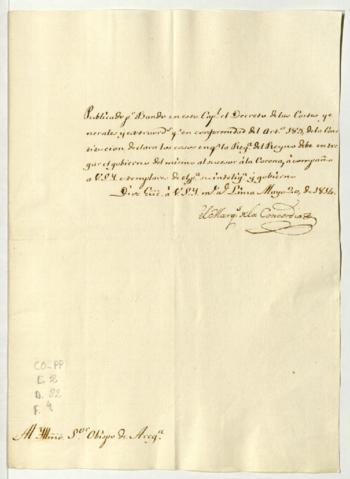 Publicado pr. Bando en esta Capl. el Decreto de las Cortes ge
nerales, y extraords. qe. en conformidad del Arto. 185, de la Cons
titucion declara los casos en qe. la Rega. del Reyno debe entre
gar el gobierno del mismo al sucesor á la Corona, acompaño
a V.S.Y. exemplares de él pa. su inteliga. y gobierno
Dios gue. á V.S.Y. ms. as. Lima Mayo 20, de 1814.
El Marqs. de la Concordia
CO-PP
C. 2
D. 82
F. 4
Al Yllmo. Sor. Obispo de Areqa.